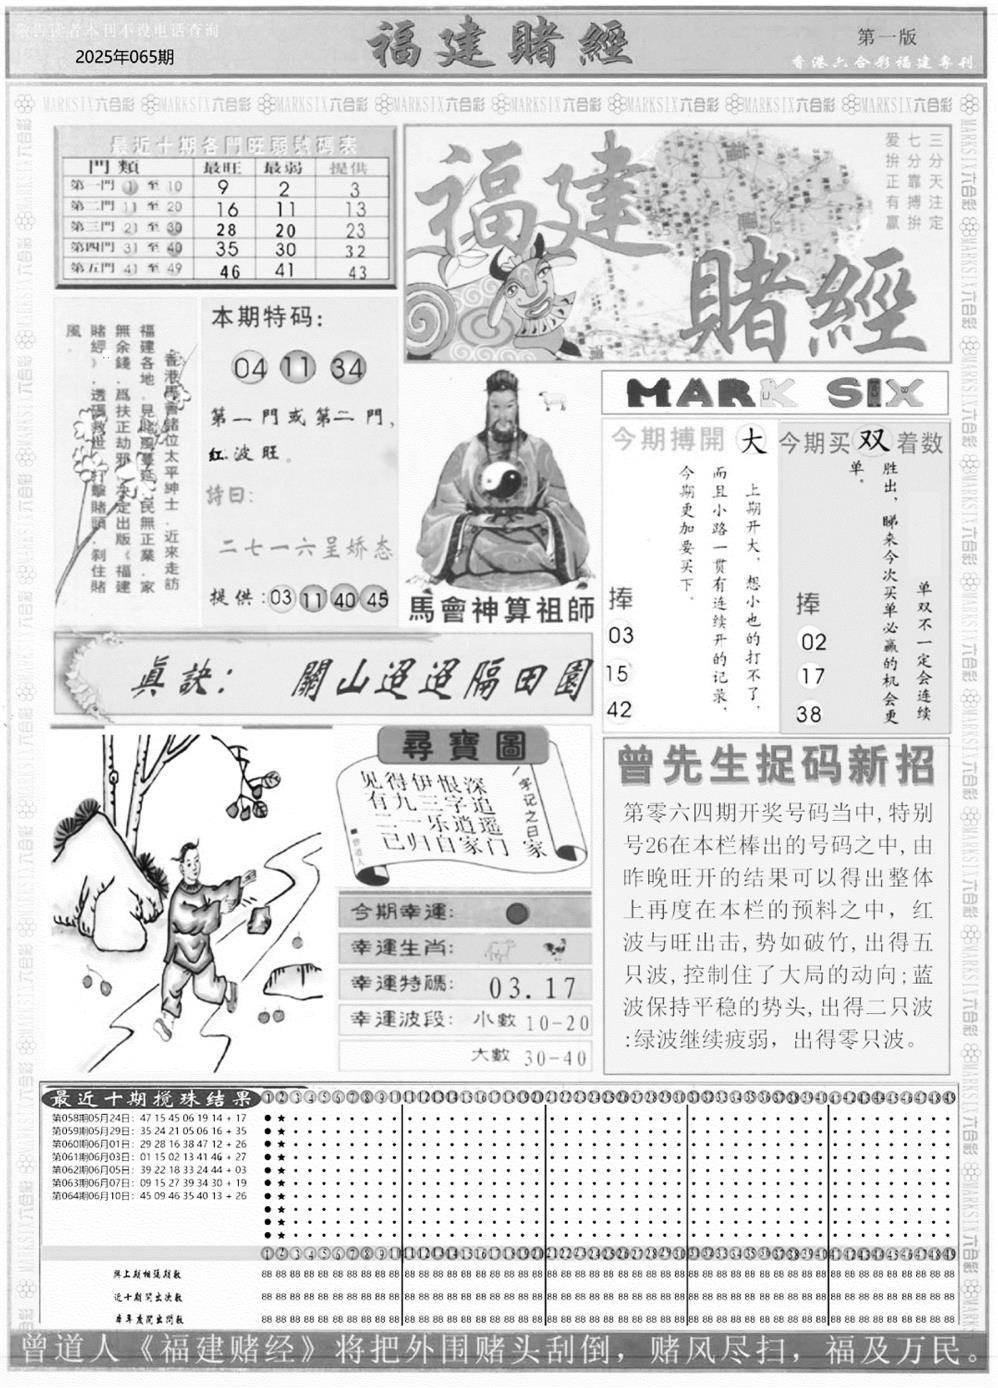 敬告读者本刊不设电话查询
2025年065期
福建賭經
第一版
香港六合彩福建專刊
最近十期各門旺弱號碼表
門類 最旺 最弱 提供
第一門 1 至 10 9 2 3
第二門 11 至 20 16 11 13
第三門 21 至 30 28 20 23
第四門 31 至 40 35 30 32
第五門 41 至 49 46 41 43
福建
賭經
三分天注定
七分靠搏拚
爱拚正有赢
香港馬會諸位太平紳士.近來走訪
無余錢.爲扶正劫邪.決定出版《福建
賭經》.透碼救世.打擊賭頭.刹住賭
風.
本期特码:
04 11 34
第一門或第二門,
红波旺。
詩曰:
二七一六呈娇态
提供:03 11 40 45
馬會神算祖師
MARK SIX
今期搏開 大
上期开大,想小也的打不了,
而且小路一贯有连续开的记录,
今期更加要买下.
捧
03
15
42
今期买 双 着数
单双不一定会连续
胜出,睇来今次买单必赢的机会更
单.
捧
02
17
38
真訣: 關山迢迢隔田園
尋寶圖
见得伊恨深
有九三字逍
二一乐逍遥
己归自家门
一字记之曰 家
■曾道人
今期幸運:
幸運生肖:
幸運特碼: 03.17
幸運波段: 小數 10-20
大數 30-40
曾先生捉码新招
第零六四期开奖号码当中,特别
号26在本栏棒出的号码之中,由
昨晚旺开的结果可以得出整体
上再度在本栏的预料之中，红
波与旺出击,势如破竹,出得五
只波,控制住了大局的动向;蓝
波保持平稳的势头,出得二只波
:绿波继续疲弱，出得零只波。
最近十期搅珠结果
第058期05月24日: 47 15 45 06 19 14 + 17
第059期05月29日: 35 24 21 05 06 16 + 35
第060期06月01日: 29 28 16 38 47 12 + 26
第061期06月03日: 01 15 02 13 41 46 + 27
第062期06月05日: 39 22 18 33 24 44 + 03
第063期06月07日: 09 15 27 39 34 30 + 19
第064期06月10日: 45 09 46 35 40 13 + 26
與上期相隔期数
近十期開出次數
本年度開出期數
曾道人《福建赌经》将把外围赌头刮倒，赌风尽扫，福及万民。